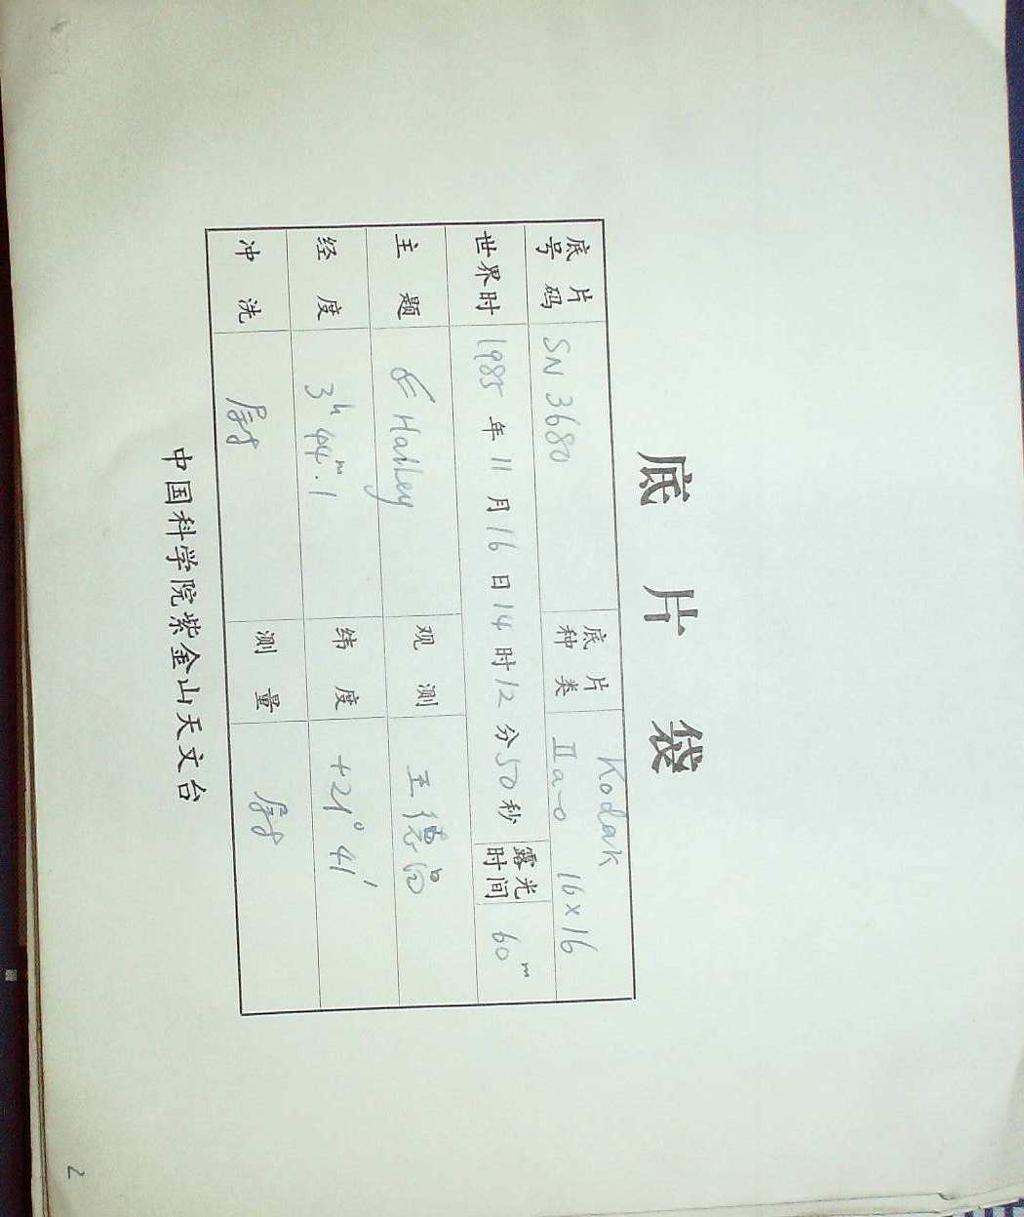 底片袋
底片号码 SN 3680 底片种类 Kodak IIa-0 16×16
世界时 1985年11月16日14时12分50秒 露光时间 60m
主题 Halley 观测 王德昌
经度 3h 44m.1 纬度 +21° 41′
冲洗 测量
中国科学院紫金山天文台
2